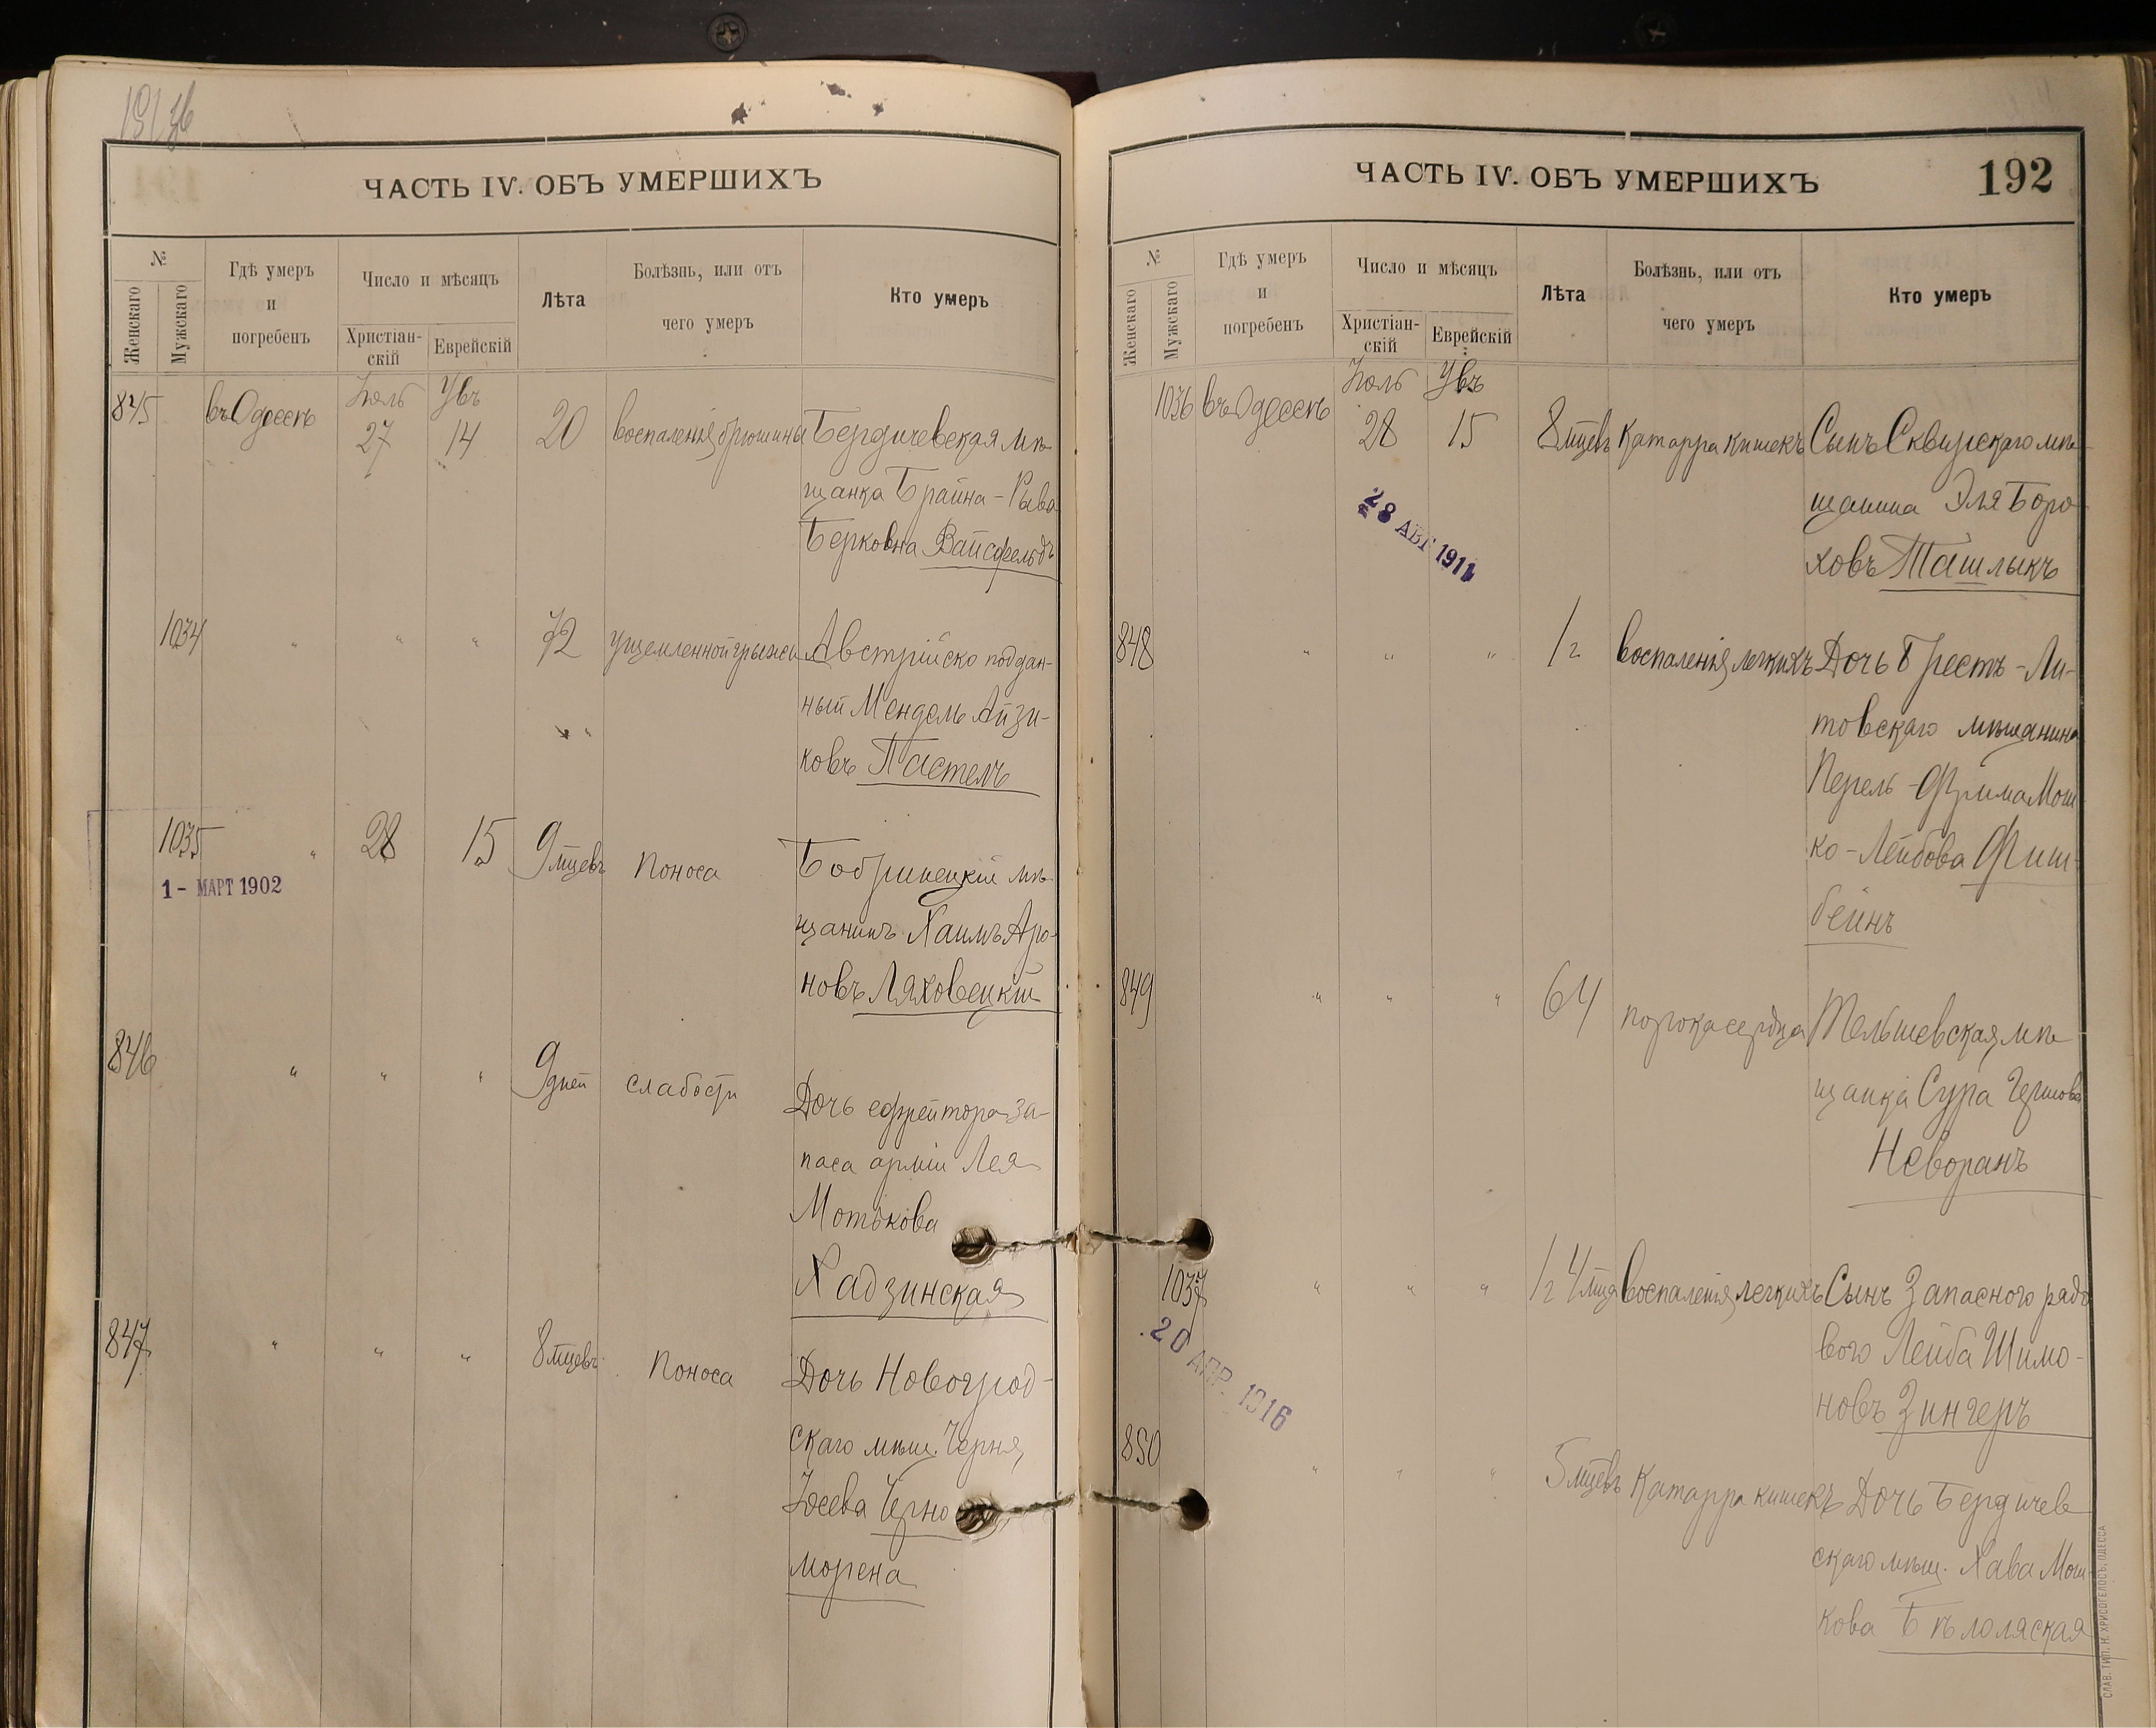 ЧАСТЬ IV. ОБЪ УМЕРШИХЪ
№
Женскаго
Мужскаго
Гдѣ умеръ
и
погребенъ
Число и мѣсяцъ
Христіан-
скій
Еврейскій
Лѣта
Болѣзнь, или отъ
чего умеръ
Кто умеръ
845
въ Одессѣ
Іюль
27
Увъ
14
20
воспаленія брюшины
Бердичевская мѣ-
щанка Брайна-Рыва
Берковна Вайсфельдъ
1034
" " "
72
ущемленной грыжи
Австрійско поддан-
ный Мендель Айзи-
ковъ Пастелъ
1035
1 - МАРТ 1902
"
28
15
9 мцевъ
поноса
Бобринецкій мѣ-
щанинъ Хаимъ Аро-
новъ Ляховецкій
846
" " "
9 дней
слабости
Дочь ефрейтора за-
паса арміи Лея
Мотькова
Хадзинская
847
" " "
8 мцевъ
поноса
Дочь Новоград-
скаго мѣщ. Черня
Іосева Черно
морена
ЧАСТЬ IV. ОБЪ УМЕРШИХЪ
192
№
Женскаго
Мужскаго
Гдѣ умеръ
и
погребенъ
Число и мѣсяцъ
Христіан-
скій
Еврейскій
Лѣта
Болѣзнь, или отъ
чего умеръ
Кто умеръ
1036
въ Одессѣ
Іюль
28
Увъ
15
8 мцевъ
Катарра кишекъ
Сынъ Сквирскаго мѣ-
щанина Эля Боро
ховъ Ташлыкъ
28 АВГ 1911
848
" " "
1 г
воспаленія легкихъ
Дочь Брестъ-Ли-
товскаго мѣщанина
Перель-Фрима Мош-
ко-Лейбова Фиш-
бейнъ
849
" " "
64
порока сердца
Тельшевская мѣ
щанка Сура Гершова
Неворанъ
1037
20 АПР. 1916
" " "
1 г 4 мца
воспаленія легкихъ
Сынъ Запасного рядо
вого Лейба Шимо-
новъ Зингеръ
850
" " "
5 мцевъ
Катарра кишекъ
Дочь Бердичев
скаго мѣщ. Хава Мош-
кова Бѣлоляская
СЛАВ. ТИП. Н. ХРИСОГЕЛОСЪ, ОДЕССА